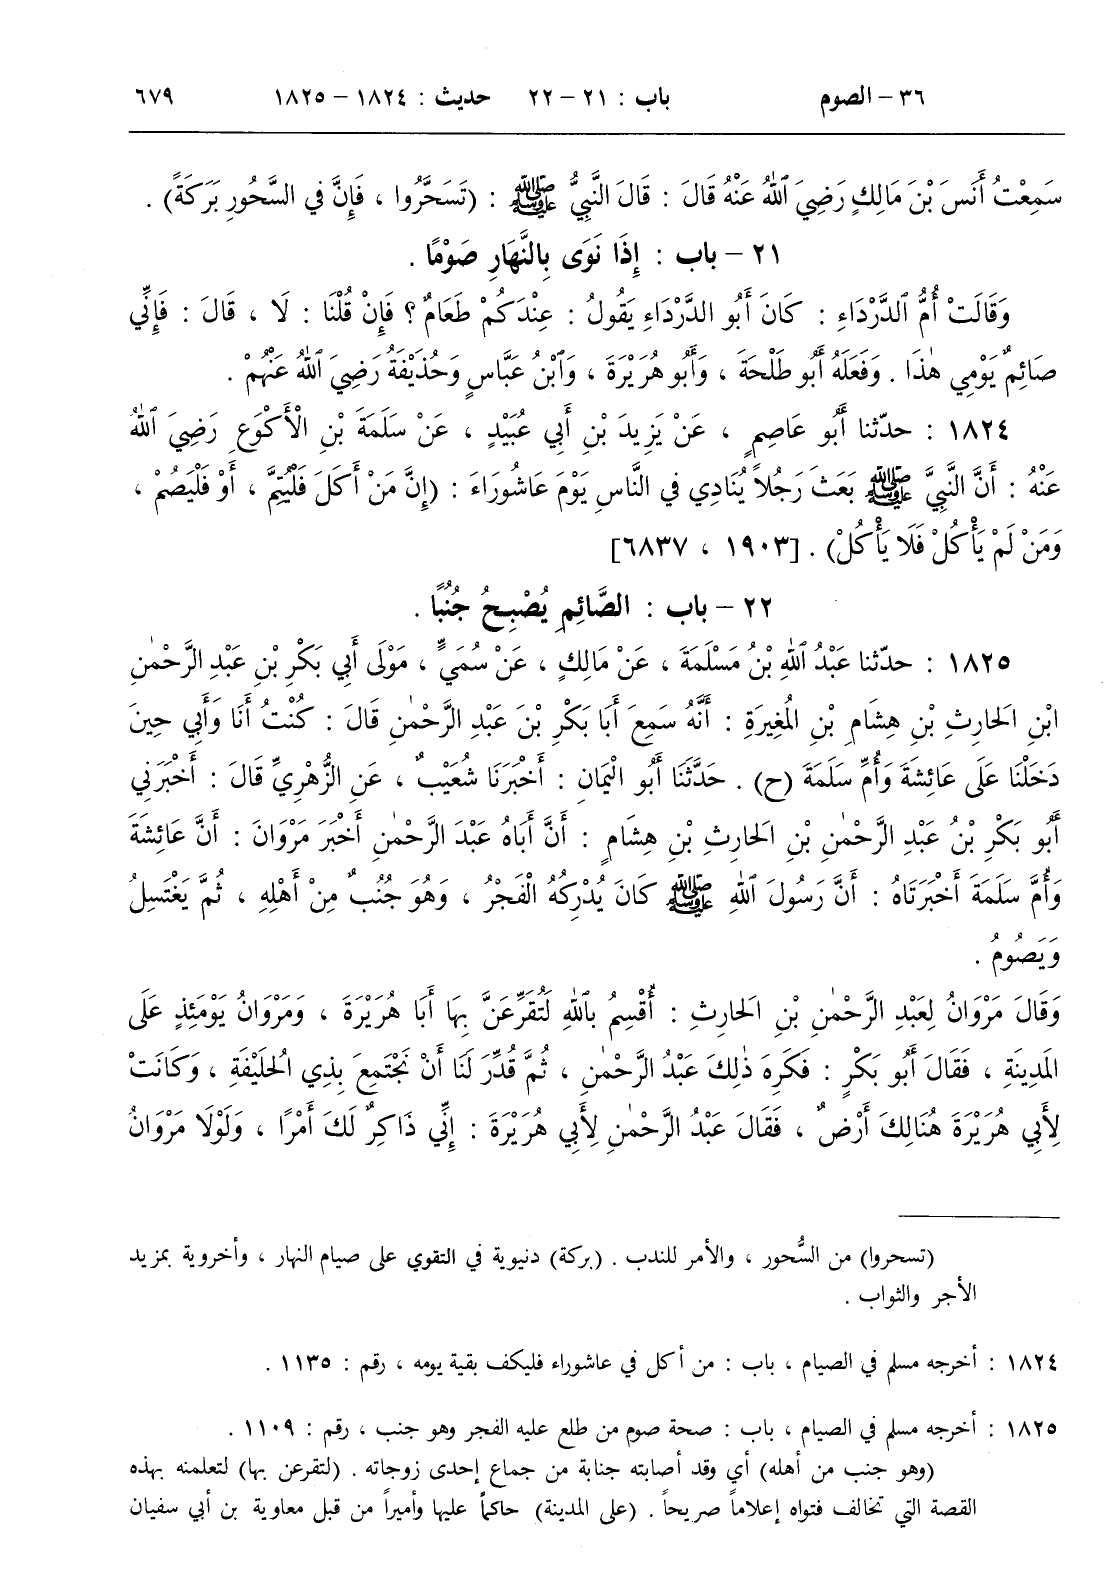 ٣٦ – الصوم باب : ٢١ – ٢٢ حديث : ١٨٢٤ – ١٨٢٥ ٦٧٩
سَمِعْتُ أَنَسَ بْنَ مَالِكٍ رَضِيَ ٱللهُ عَنْهُ قَالَ : قَالَ النَّبِيُّ ﷺ : (تَسَحَّرُوا ، فَإِنَّ في السَّحُورِ بَرَكَةً) .
٢١ – باب : إِذَا نَوَى بِالنَّهَارِ صَوْمًا .
وَقَالَتْ أُمُّ ٱلدَّرْدَاءِ : كَانَ أَبُو الدَّرْدَاءِ يَقُولُ : عِنْدَكُمْ طَعَامٌ ؟ فَإِنْ قُلْنَا : لَا ، قَالَ : فَإِنِّي
صَائِمٌ يَوْمِي هٰذَا . وَفَعَلَهُ أَبُو طَلْحَةَ ، وَأَبُو هُرَيْرَةَ ، وَٱبْنُ عَبَّاسٍ وَحُذَيْفَةُ رَضِيَ ٱللهُ عَنْهُمْ .
١٨٢٤ : حدّثنا أَبُو عَاصِمٍ ، عَنْ يَزِيدَ بْنِ أَبِي عُبَيْدٍ ، عَنْ سَلَمَةَ بْنِ الْأَكْوَعِ رَضِيَ ٱللهُ
عَنْهُ : أَنَّ النَّبِيَّ ﷺ بَعَثَ رَجُلاً يُنَادِي في النَّاسِ يَوْمَ عَاشُورَاءَ : (إِنَّ مَنْ أَكَلَ فَلْيُتِمَّ ، أَوْ فَلْيَصُمْ ،
وَمَنْ لَمْ يَأْكُلْ فَلَا يَأْكُلْ) . [١٩٠٣ ، ٦٨٣٧]
٢٢ – باب : الصَّائِمِ يُصْبِحُ جُنُبًا .
١٨٢٥ : حدّثنا عَبْدُ ٱللهِ بْنُ مَسْلَمَةَ ، عَنْ مَالِكٍ ، عَنْ سُمَيٍّ ، مَوْلَى أَبِي بَكْرِ بْنِ عَبْدِ الرَّحْمٰنِ
ابْنِ الحَارِثِ بْنِ هِشَامِ بْنِ المُغِيرَةِ : أَنَّهُ سَمِعَ أَبَا بَكْرِ بْنَ عَبْدِ الرَّحْمٰنِ قَالَ : كُنْتُ أَنَا وَأَبِي حِينَ
دَخَلْنَا عَلَى عَائِشَةَ وَأُمِّ سَلَمَةَ (ح) . حَدَّثَنَا أَبُو الْيَمَانِ : أَخْبَرَنَا شُعَيْبٌ ، عَنِ الزُّهْرِيِّ قَالَ : أَخْبَرَنِي
أَبُو بَكْرِ بْنُ عَبْدِ الرَّحْمٰنِ بْنِ الحَارِثِ بْنِ هِشَامٍ : أَنَّ أَبَاهُ عَبْدَ الرَّحْمٰنِ أَخْبَرَ مَرْوَانَ : أَنَّ عَائِشَةَ
وَأُمَّ سَلَمَةَ أَخْبَرَتَاهُ : أَنَّ رَسُولَ ٱللهِ ﷺ كَانَ يُدْرِكُهُ الْفَجْرُ ، وَهُوَ جُنُبٌ مِنْ أَهْلِهِ ، ثُمَّ يَغْتَسِلُ
وَيَصُومُ .
وَقَالَ مَرْوَانُ لِعَبْدِ الرَّحْمٰنِ بْنِ الحَارِثِ : أُقْسِمُ بِٱللهِ لَتُقَرِّعَنَّ بِهَا أَبَا هُرَيْرَةَ ، وَمَرْوَانُ يَوْمَئِذٍ عَلَى
المَدِينَةِ ، فَقَالَ أَبُو بَكْرٍ : فَكَرِهَ ذٰلِكَ عَبْدُ الرَّحْمٰنِ ، ثُمَّ قُدِّرَ لَنَا أَنْ نَجْتَمِعَ بِذِي الحُلَيْفَةِ ، وَكَانَتْ
لِأَبِي هُرَيْرَةَ هُنَالِكَ أَرْضٌ ، فَقَالَ عَبْدُ الرَّحْمٰنِ لِأَبِي هُرَيْرَةَ : إِنِّي ذَاكِرٌ لَكَ أَمْرًا ، وَلَوْلَا مَرْوَانُ
(تسحروا) من السُّحور ، والأمر للندب . (بركة) دنيوية في التقوي على صيام النهار ، وأخروية بمزيد
الأجر والثواب .
١٨٢٤ : أخرجه مسلم في الصيام ، باب : من أكل في عاشوراء فليكف بقية يومه ، رقم : ١١٣٥ .
١٨٢٥ : أخرجه مسلم في الصيام ، باب : صحة صوم من طلع عليه الفجر وهو جنب ، رقم : ١١٠٩ .
(وهو جنب من أهله) أي وقد أصابته جنابة من جماع إحدى زوجاته . (لتقرعن بها) لتعلمنه بهذه
القصة التي تخالف فتواه إعلاماً صريحاً . (على المدينة) حاكماً عليها وأميراً من قبل معاوية بن أبي سفيان